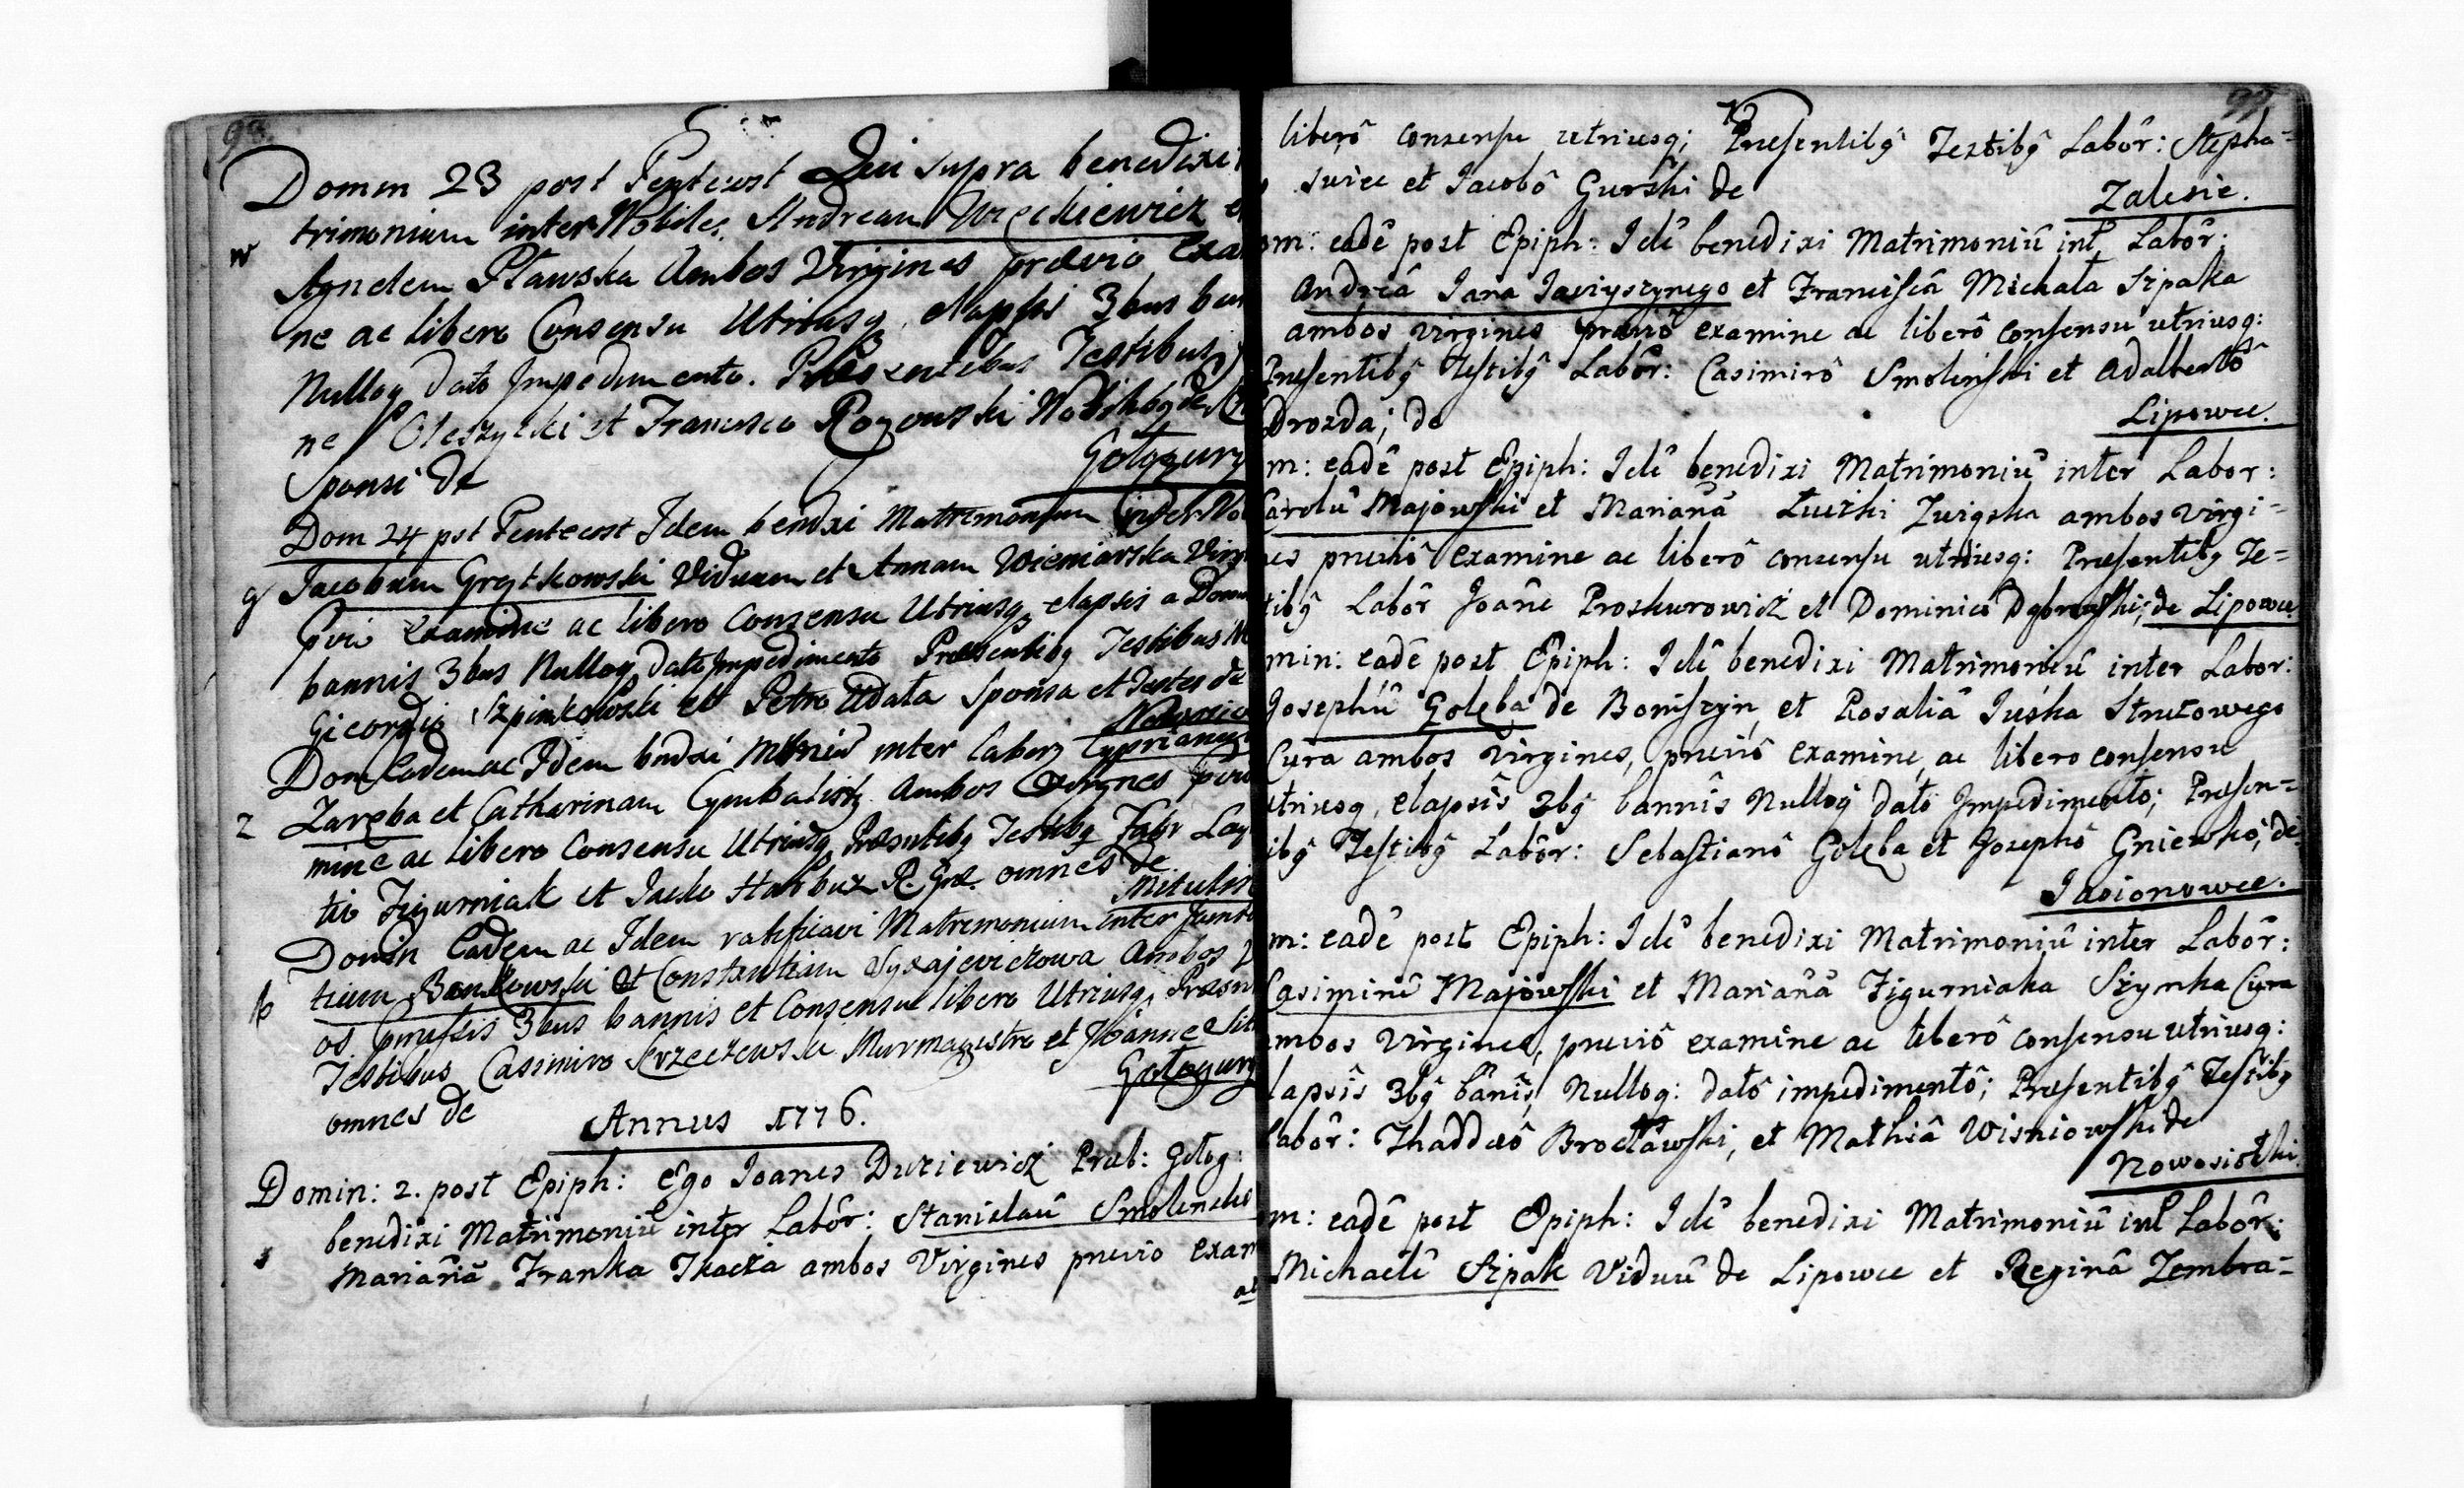 98.
Domin 23 post Pentecost Qui supra benedixi
trimonium inter Nobiles Andream Więckiewicz
w
Agnetem Pławska Ambos Virgines prævio Exa
ne ac libero Consensu Utriusq, elapsis 3bus ban
Nulloq dato Impedimento. Præsentibus Testibus
ne Oleszycki et Francisco Rozowski Nobilibq de
Gołogury
Sponsi de
Dom 24 pst Pentecost Idem bendxi Matrimonium inter No
g Jacobum Grotkowski Viduum et Annam Wieniarska Virg
pvio Examine ac libero Consensu Utriusq elapsis a Domin
bannis 3bus Nulloq dato Impedimento Præsentibq Testibus
Szpinkowski et Petro Udata Sponsa et Testes de
Dom Eadem ac Idem bndxi Mtrniũ inter Labor Cyprianum
z Zaręba et Catharinam Cymbalistz Ambos Virgnes pvio
mine ac libero Consensu Utriusq Præsntibq Testibq Fabr Lau
tio Figurniak et Jacko Harbuz R. Græ. omnes de
Mitulin
Domin Eadem ac Idem ratificavi Matrimonium inter
b tium Bonkowski et Constantiam Ambos
os pmissis 3bus bannis et Consensu libero Utriusq, Præsen
Testibus Casimiro Strzeczewski Murmagistro et Joanne
omnes de
Gołogury
Annus 1776.
Domin: 2. post Epiph: Ego Joanes Duziewicz Præb: Gołog:
benedixi Matrimoniũ inter Labôr: Stanislaũ Smolenski
s Mariañã Franka Tkacza ambos Virgines prævio exam
ac
99.
liberô consensu utriusq; Præsentibq̃ Testibq̃ Labôr: Stepha-
et Jacobô Gurski de
Zalesie.
om: eadê post Epiph: Idê benedixi Matrimoniũ int, Labôr:
Andreâ Jana Jaciyszynego et Franciscâ Michała Szpaka
ambos virgines præviô examine ac liberô consensu utriusq:
Præsentibq̃ Testibq̃ Labôr: Casimirô Smolinski et Adalbertô
Drozda; de
Lipowce.
m: eadê post Epiph: Idê benedixi Matrimoniũ inter Labor:
Carolũ Majowski et Mariañã Łucżki Zuigska ambos Virgi-
nes præviô examine ac liberô consensu utriusq: Præsentibq Te-
tibq̃ Labôr Joâne Proskurowicż et Dominicô Dąbrowski; de Lipowce
min: eadê post Epiph: Idê benedixi Matrimoniũ inter Labor:
Josephũ Gołęba de Boniszyn, et Rosaliâ Juśka Strutowego
Cura ambos virgines, præviô examine, ac libero consensu
utriusq, elapsîs 3bq̃ bannîs Nulloq datô Impedimentô; Præsen-
ibq̃ Testibq̃ Labôr: Sebastianô Gołęba et Josephô Gniewko, de
Jasionowce.
m: eadê post Epiph: Idê benedixi Matrimoniũ inter Labôr:
Casimirũ Majowski et Mariañã Figurniaka Szymka Cura
ambos Virgines, præviô examine ac liberô consensu utriusq:
lapsîs 3bq̃ bânîs, Nulloq: datô impedimentô; Præsentibq̃ Testibq
Labôr: Thaddæô Brocławski, et Mathiâ Wisniowski de
Nowosiołki.
om: eadê post Epiph: Idê benedixi Matrimoniũ int Labôr:
Michaelê Szpak Viduũ de Lipowce et Reginâ Zembra-